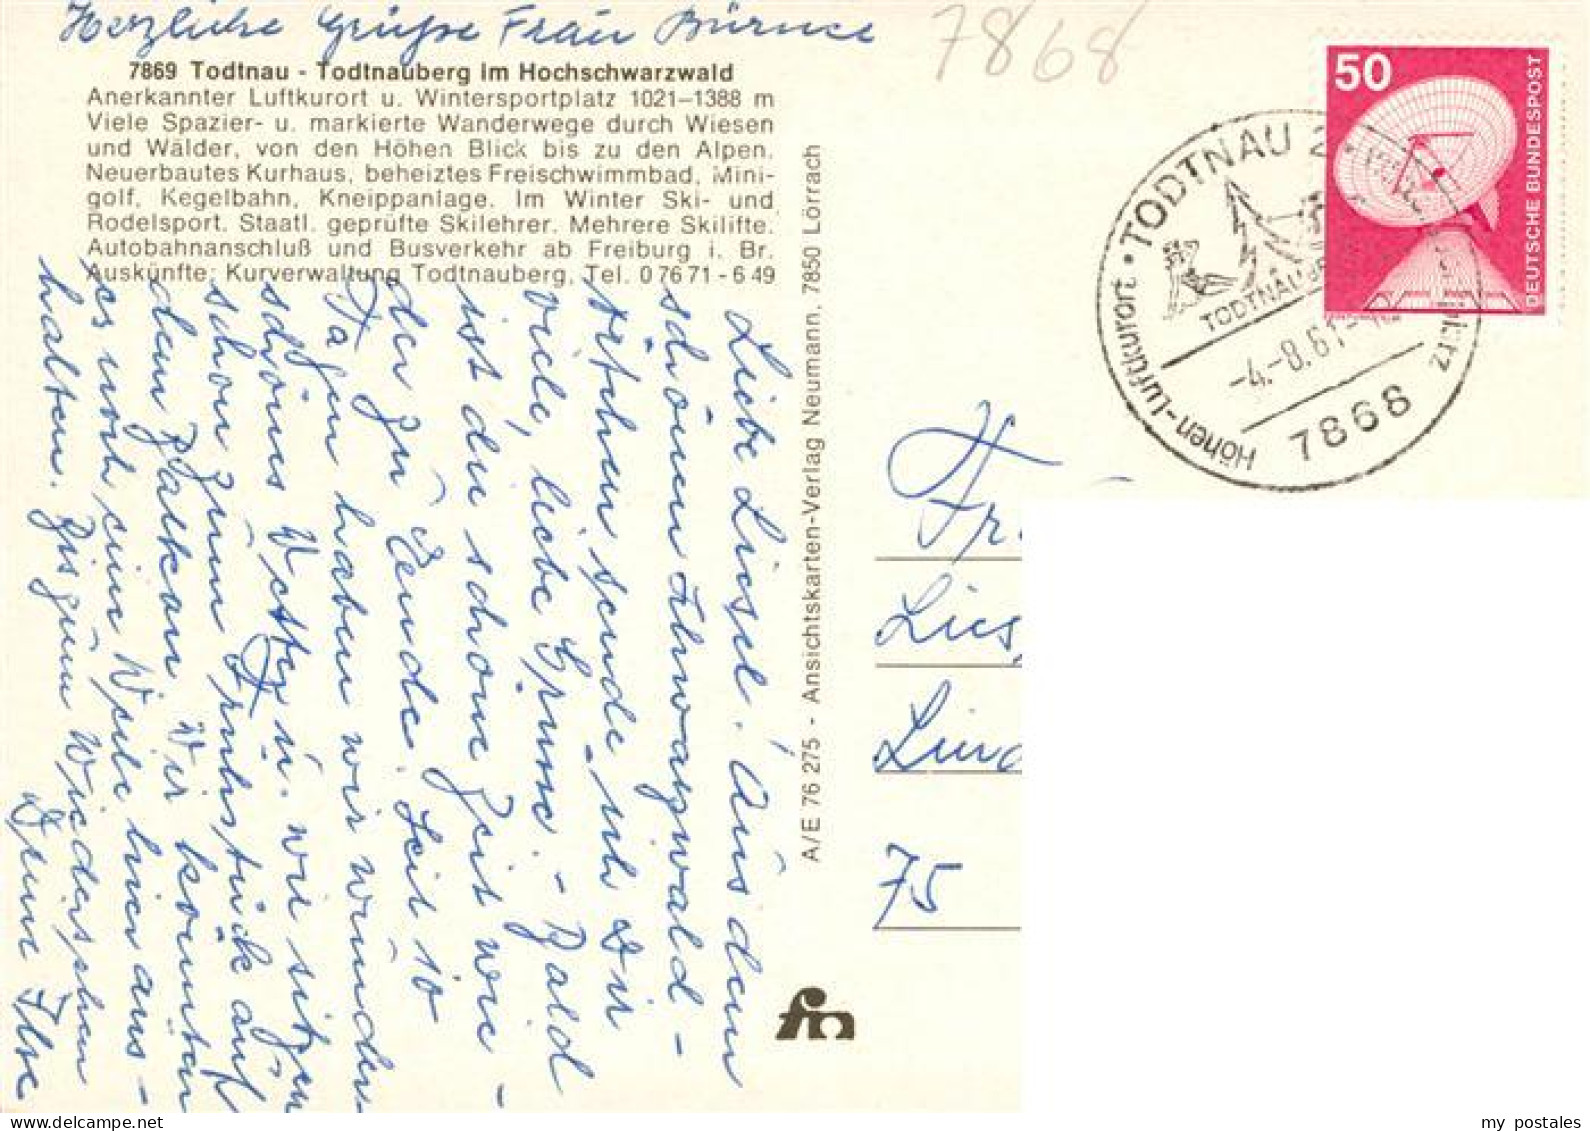 Herzliche Grüße Frau Bürnce
7868
7869 Todtnau - Todtnauberg im Hochschwarzwald
Anerkannter Luftkurort u. Wintersportplatz 1021–1388 m
Viele Spazier- u. markierte Wanderwege durch Wiesen
und Wälder, von den Höhen Blick bis zu den Alpen.
Neuerbautes Kurhaus, beheiztes Freischwimmbad, Mini-
golf, Kegelbahn, Kneippanlage. Im Winter Ski- und
Rodelsport. Staatl. geprüfte Skilehrer. Mehrere Skilifte.
Autobahnanschluß und Busverkehr ab Freiburg i. Br.
Auskünfte: Kurverwaltung Todtnauberg, Tel. 0 76 71 - 6 49
Liebe Liesel! Aus dem
schönen Schwarzwald-
örtchen sende ich Dir
viele, liebe Grüsse. - Bald
ist die schöne Zeit wie-
der zu Ende. Seit 10
Tagen haben wir wunder
schönes Wetter u. wir sitzen
schon zum Frühstück auf
dem Balkon. Wir könnten
es noch eine Weile hier aus-
halten. Bis zum Wiedersehen
Deine Ilse
A/E 76 275 - Ansichtskarten-Verlag Neumann, 7850 Lörrach
fn
50
DEUTSCHE BUNDESPOST
TODTNAU 2
TODTNAUBE
Höhen-Luftkurort
-4.-8.81
7868
Fr.
Lies
Lind
75
my postales